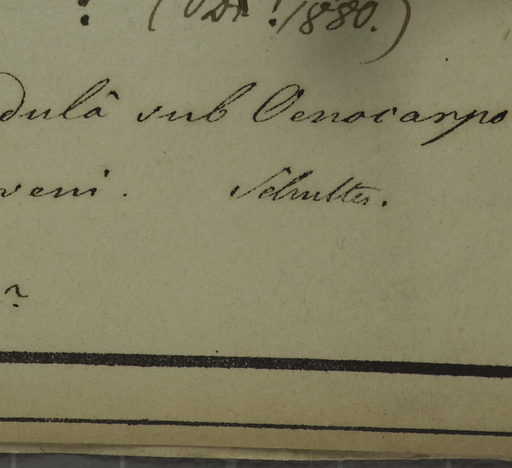 ! 1880.)
dulâ sub Oenocarpo
veni. Schultes.